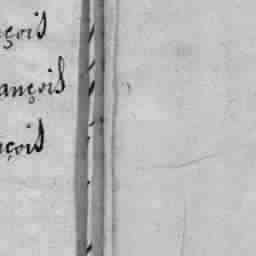 çois
ançois
çois